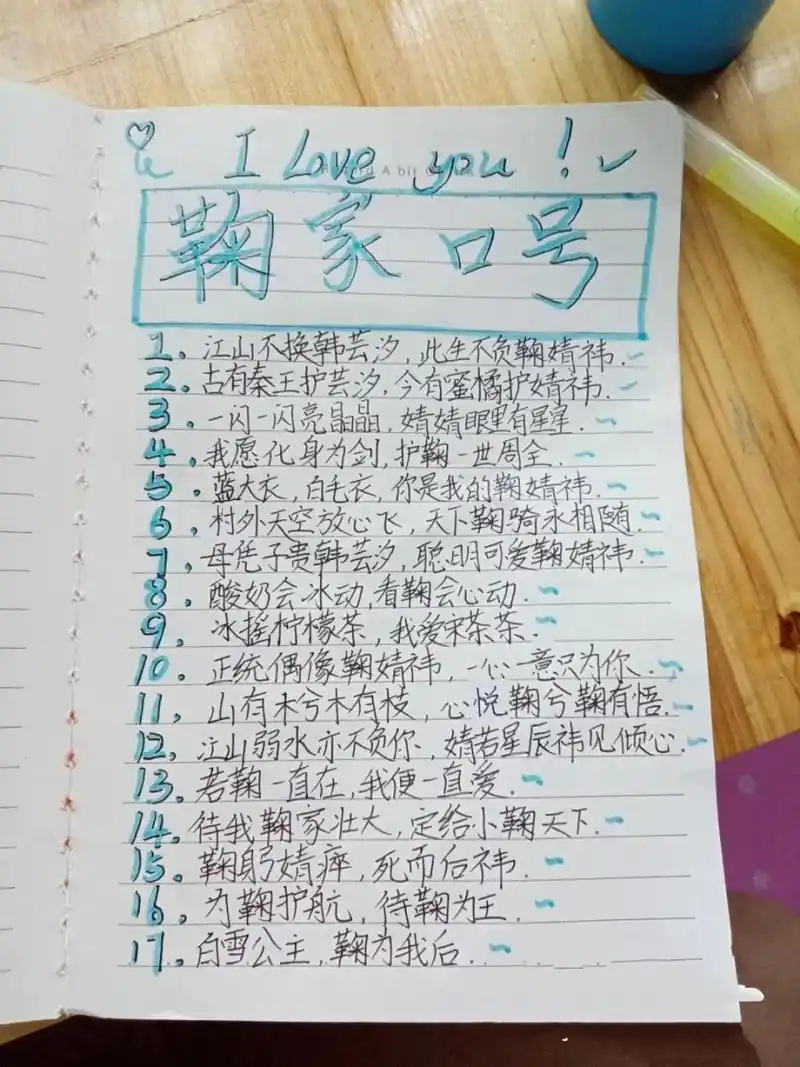 I Love you!
鞠家口号
1. 江山不换韩芸汐,此生不负鞠婧祎.
2. 古有秦王护芸汐.今有蜜橘护婧祎.
3. 一闪一闪亮晶晶,婧婧眼里有星星.
4. 我愿化身为剑,护鞠一世周全.
5. 蓝大衣,白毛衣,你是我的鞠婧祎.
6. 村外天空放心飞,天下鞠骑永相随.
7. 母凭子贵韩芸汐,聪明可爱鞠婧祎.
8. 酸奶会冰动,看鞠会心动.
9. 冰摇柠檬茶,我爱宋茶茶.
10. 正统偶像鞠婧祎,一心一意只为你.
11. 山有木兮木有枝,心悦鞠兮鞠有悟.
12. 江山弱水亦不负你,婧若星辰祎见倾心.
13. 若鞠一直在,我便一直爱.
14. 待我鞠家壮大,定给小鞠天下.
15. 鞠躬婧瘁,死而后祎.
16. 为鞠护航,待鞠为王.
17. 白雪公主,鞠为我后.